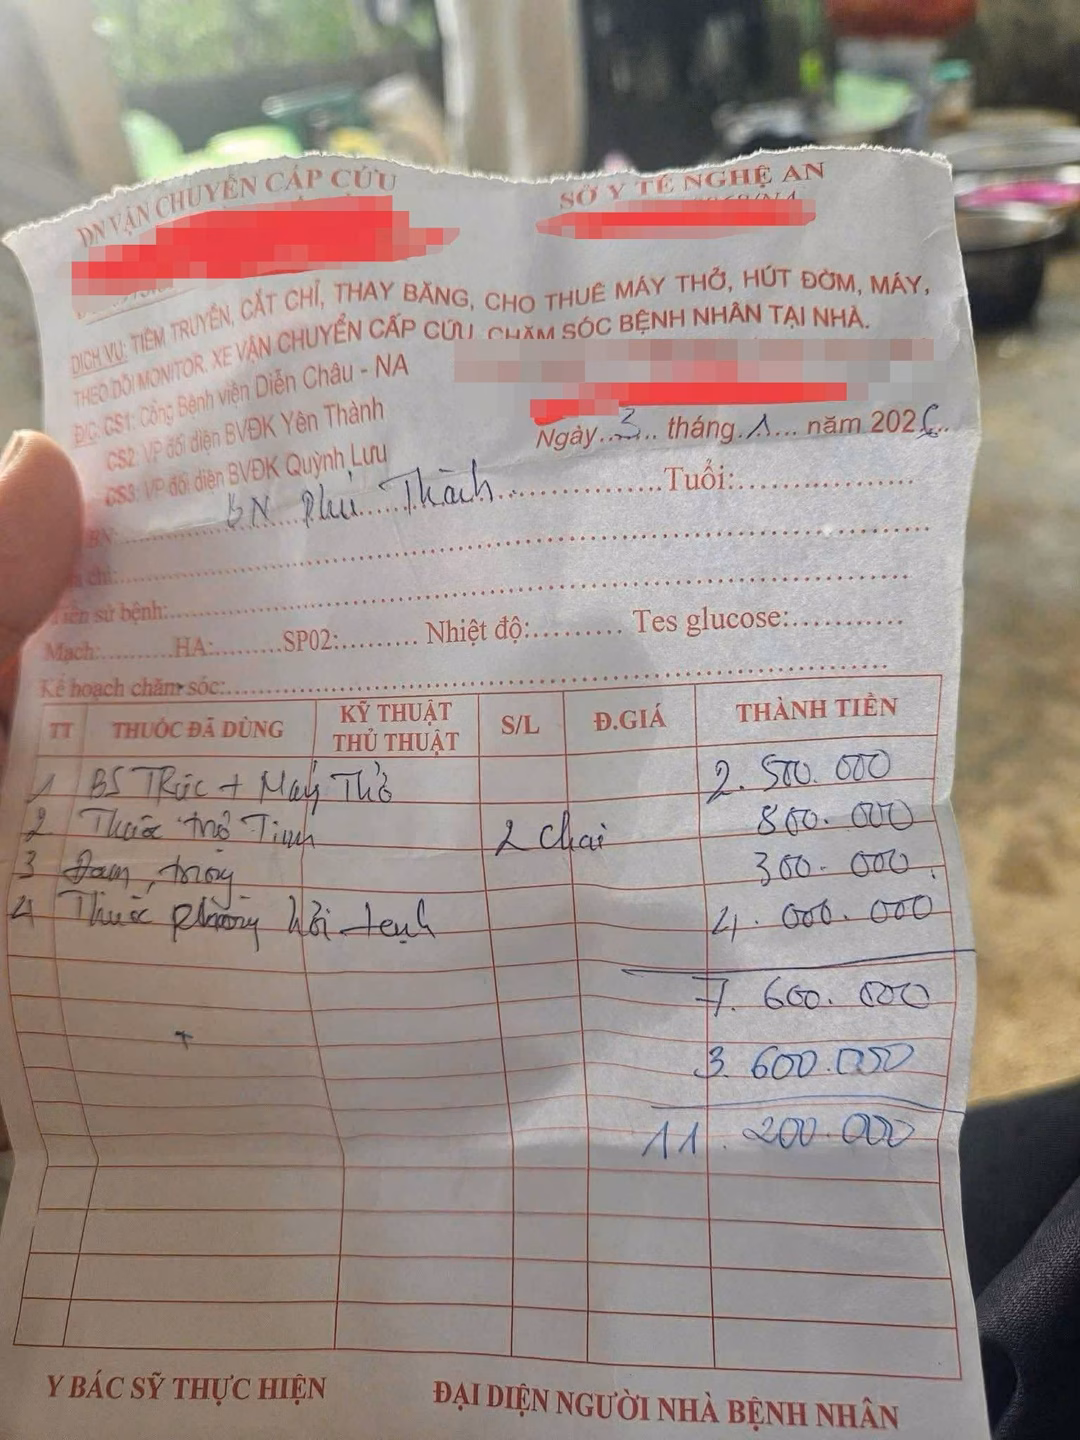 DN VẬN CHUYỂN CẤP CỨU
SỞ Y TẾ NGHỆ AN
DỊCH VỤ: TIÊM TRUYỀN, CẮT CHỈ, THAY BĂNG, CHO THUÊ MÁY THỞ, HÚT ĐỜM, MÁY,
THEO DÕI MONITOR. XE VẬN CHUYỂN CẤP CỨU, CHĂM SÓC BỆNH NHÂN TẠI NHÀ.
Đ/C: CS1: Cổng Bệnh viện Diễn Châu - NA
CS2: VP đối diện BVĐK Yên Thành
CS3: VP đối diện BVĐK Quỳnh Lưu
Ngày...3... tháng.1.... năm 202
BN:.......BN Phú Thành...............Tuổi:..................
chỉ:..................
Tiền sử bệnh:..................
Mạch:..........HA:.........SP02:......... Nhiệt độ:......... Tes glucose:...........
Kế hoạch chăm sóc:..................
TT THUỐC ĐÃ DÙNG KỸ THUẬT THỦ THUẬT S/L Đ.GIÁ THÀNH TIỀN
1 BS Trực + Máy Thở 2.500.000
2 Thuốc trợ Tim 2 chai 800.000
3 Đạm, 300.000
4 Thuốc phòng hồi 4.000.000
7.600.000
3.600.000
11.200.000
Y BÁC SỸ THỰC HIỆN
ĐẠI DIỆN NGƯỜI NHÀ BỆNH NHÂN